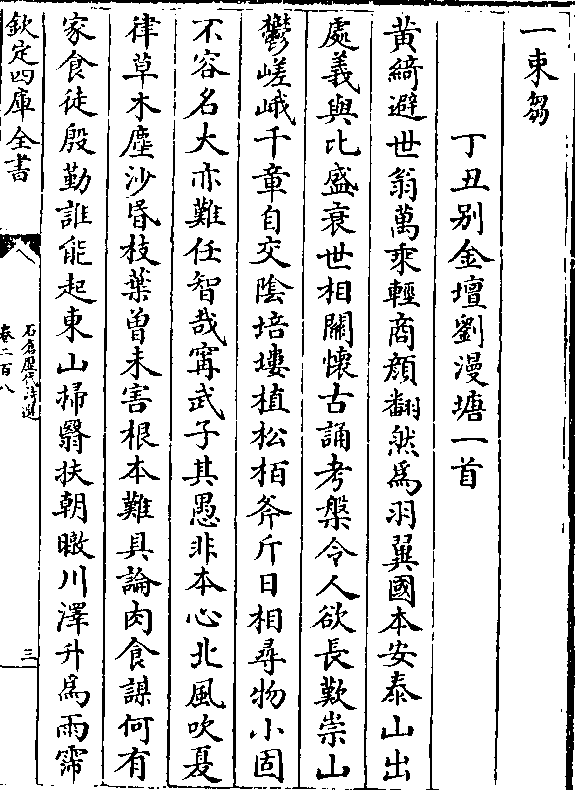 一束芻
丁丑别金壇劉漫塘一首
黄綺避世翁萬乘輕商顔翻然爲羽翼國本安泰山出
處義與比盛衰世相關懷古誦考槃令人欲長歎崇山
鬱嵯峨千章自交陰培塿植松栢斧斤日相尋物小固
不容名大亦難任智哉甯武子其愚非本心北風吹夏
律草木塵沙昏枝葉曾未害根本難具論肉食謀何有
家食徒殷勤誰能起東山掃翳扶朝暾川澤升爲雨霈
欽定四庫全書
石倉歷代詩選
卷二百八
三